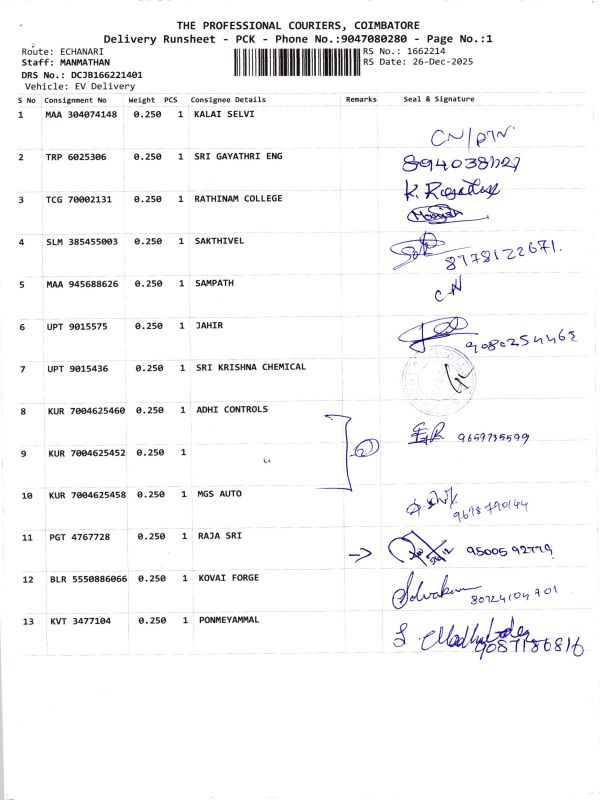 THE PROFESSIONAL COURIERS, COIMBATORE
Delivery Runsheet - PCK - Phone No.:9047080280 - Page No.:1
Route: ECHANARI
Staff: MANMATHAN
DRS No.: DCJB166221401
Vehicle: EV Delivery
RS No.: 1662214
RS Date: 26-Dec-2025
S No Consignment No Weight PCS Consignee Details Remarks Seal & Signature
1 MAA 304074148 0.250 1 KALAI SELVI
CN/
2 TRP 6025306 0.250 1 SRI GAYATHRI ENG
3 TCG 70002131 0.250 1 RATHINAM COLLEGE K.
4 SLM 385455003 0.250 1 SAKTHIVEL
8778122671.
5 MAA 945688626 0.250 1 SAMPATH CN
6 UPT 9015575 0.250 1 JAHIR
9080254462
7 UPT 9015436 0.250 1 SRI KRISHNA CHEMICAL
8 KUR 7004625460 0.250 1 ADHI CONTROLS
9659735599
9 KUR 7004625452 0.250 1 "
10 KUR 7004625458 0.250 1 MGS AUTO
9698790144
11 PGT 4767728 0.250 1 RAJA SRI
95005 92779
12 BLR 5550886066 0.250 1 KOVAI FORGE
13 KVT 3477104 0.250 1 PONMEYAMMAL
9087186816